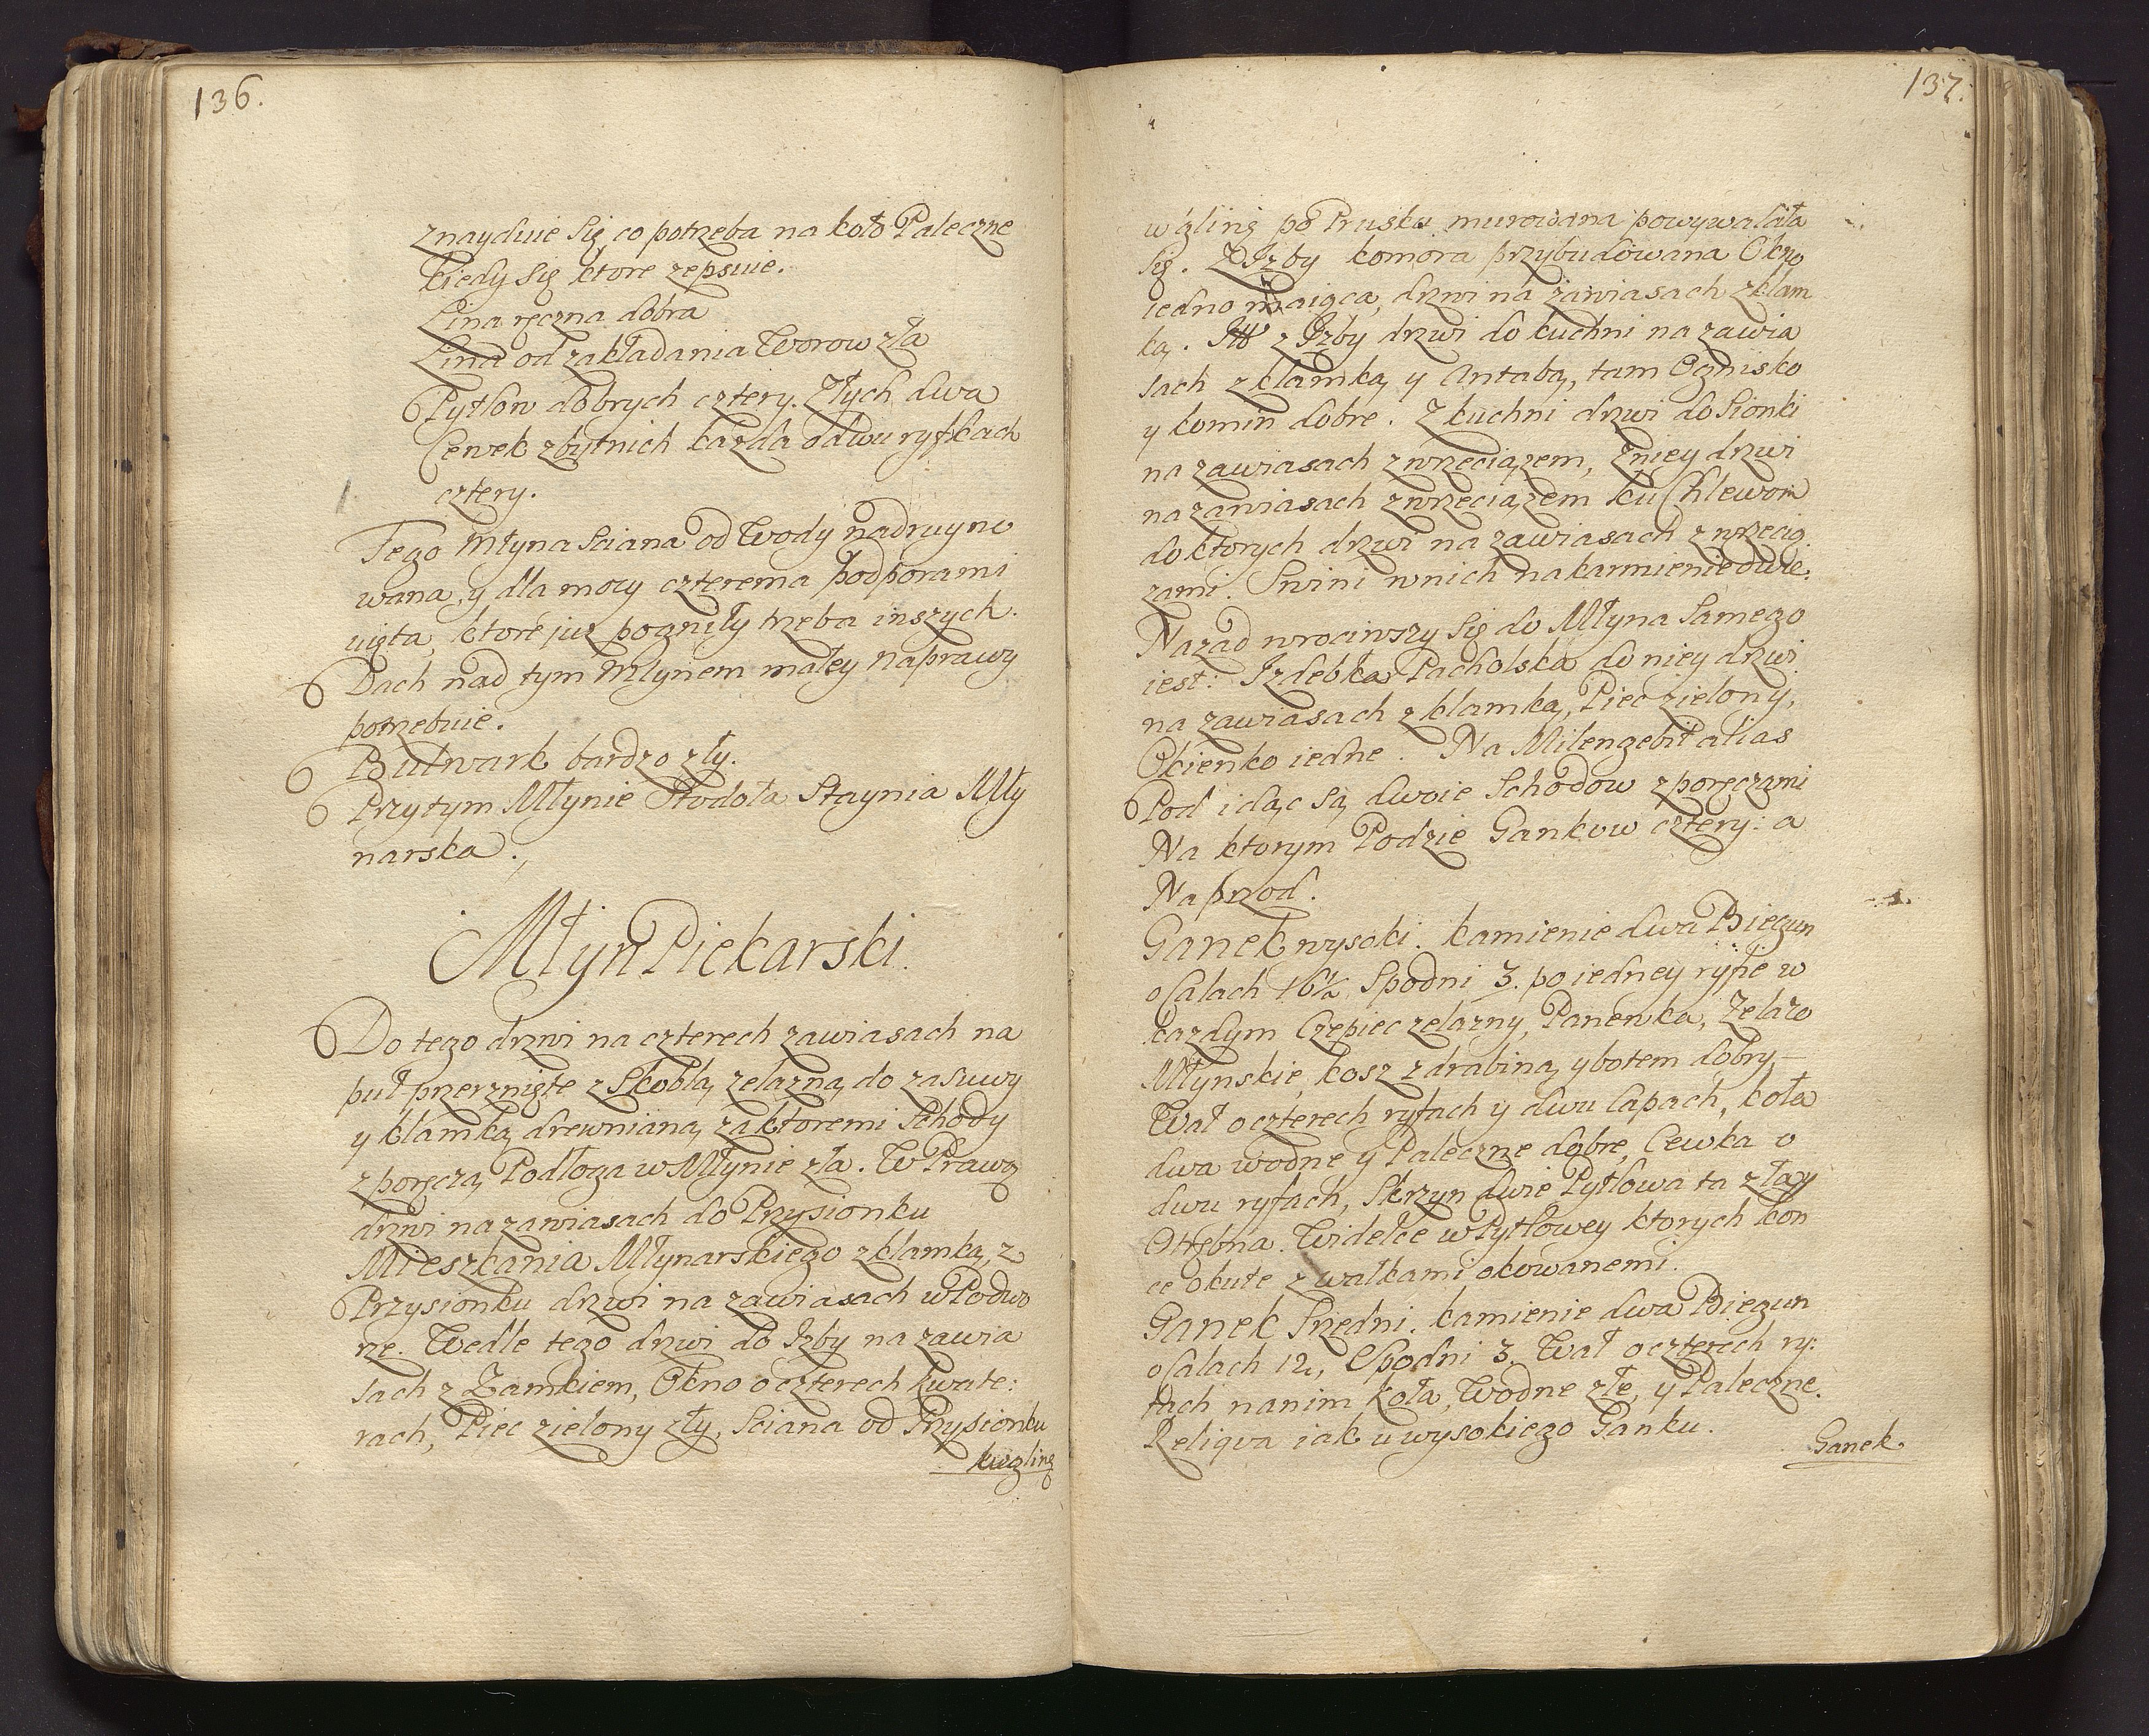 136.
znayduie Się co potrzeba na koło Paleczne
kiedy Się ktore zepsuie.
Lina ręczna dobra
Lina od zakładania Worow zła
Pytlow dobrych cztery. Złych dwa
Cewek zbytnich kazda o dwu ryfkach
cztery.
Tego Młyna Sciana od Wody nadruyno
wana, y dla mocy czterema podporami
uięta, ktore juz pogniły trzeba inszych.
Dach nad tym Młynem małey naprawy
potrzebuie.
Bulwark bardzo zły.
Przy tym Młynie Stodoła Staynia Mły
narska.
Młyn Piekarski.
Do tego drzwi na czterech zawiasach na
puł przerznięte z Skoblą zelazną do zasuwy
y klamką drewnianą, za ktoremi Schody
z poręczą Podłoga w Młynie zła. W Prawą
drzwi na zawiasach do Przysionku
Mieszkania Młynarskiego z klamką, z
Przysionku drzwi na zawiasach w Podwo
rze. Wedle tego drzwi do Izby na zawia
sach z Zamkiem, Okno o czterech kwate:
rach, Piec zielony zły, Sciana od Przysionku
w glinę
137.
w glinę po Prusku murowana powywalała
Się. Z Izby komora przybudowana Okno
iedno maiąca, drzwi na zawiasach z klam
ką. z Izby drzwi do kuchni na zawia
sach z klamką y Antabą, tam Ognisko
y komin dobre. Z kuchni drzwi do Sionki
na zawiasach z wrzeciązem, Z niey drzwi
na zawiasach z wrzeciązem ku Chlewom
do ktorych drzwi na zawiasach z wrzecią
zami. Swini w nich na karmienie dwie.
Nazad wrociwszy Się do Młyna Samego
iest: Izdebka Pacholska do niey drzwi
na zawiasach z klamką, Piec zielony,
Okienko iedne. Na Milengebit alias
Pod idąc Są dwoie Schodow z poręczami
Na ktorym Podzie Gankow cztery: a
Naprzod.
Ganek wysoki. kamienie dwa Biegun
o Calach 16½ Spodni 3. po iedney ryfie w
kazdym Czepiec zelazny, Panewka, Zelazo
Młynskie, kosz z drabiną y botem dobry –
Wał o czterech ryfach y dwu Capach, koła
dwa wodne y Paleczne dobre, Cewka o
dwu ryfach, Skrzyn dwie Pytlowa ta zła y
Otrębna. Widelce w Pytlowey ktorych kon
ce okute z wałkami okowanemi.
Ganek Sredni. kamienie dwa Biegun
o Calach 12, Spodni 3. Wał o czterech ry:
fach na nim koła, Wodne złe, y Paleczne.
Reliqva iak u wysokiego Ganku.
Ganek.